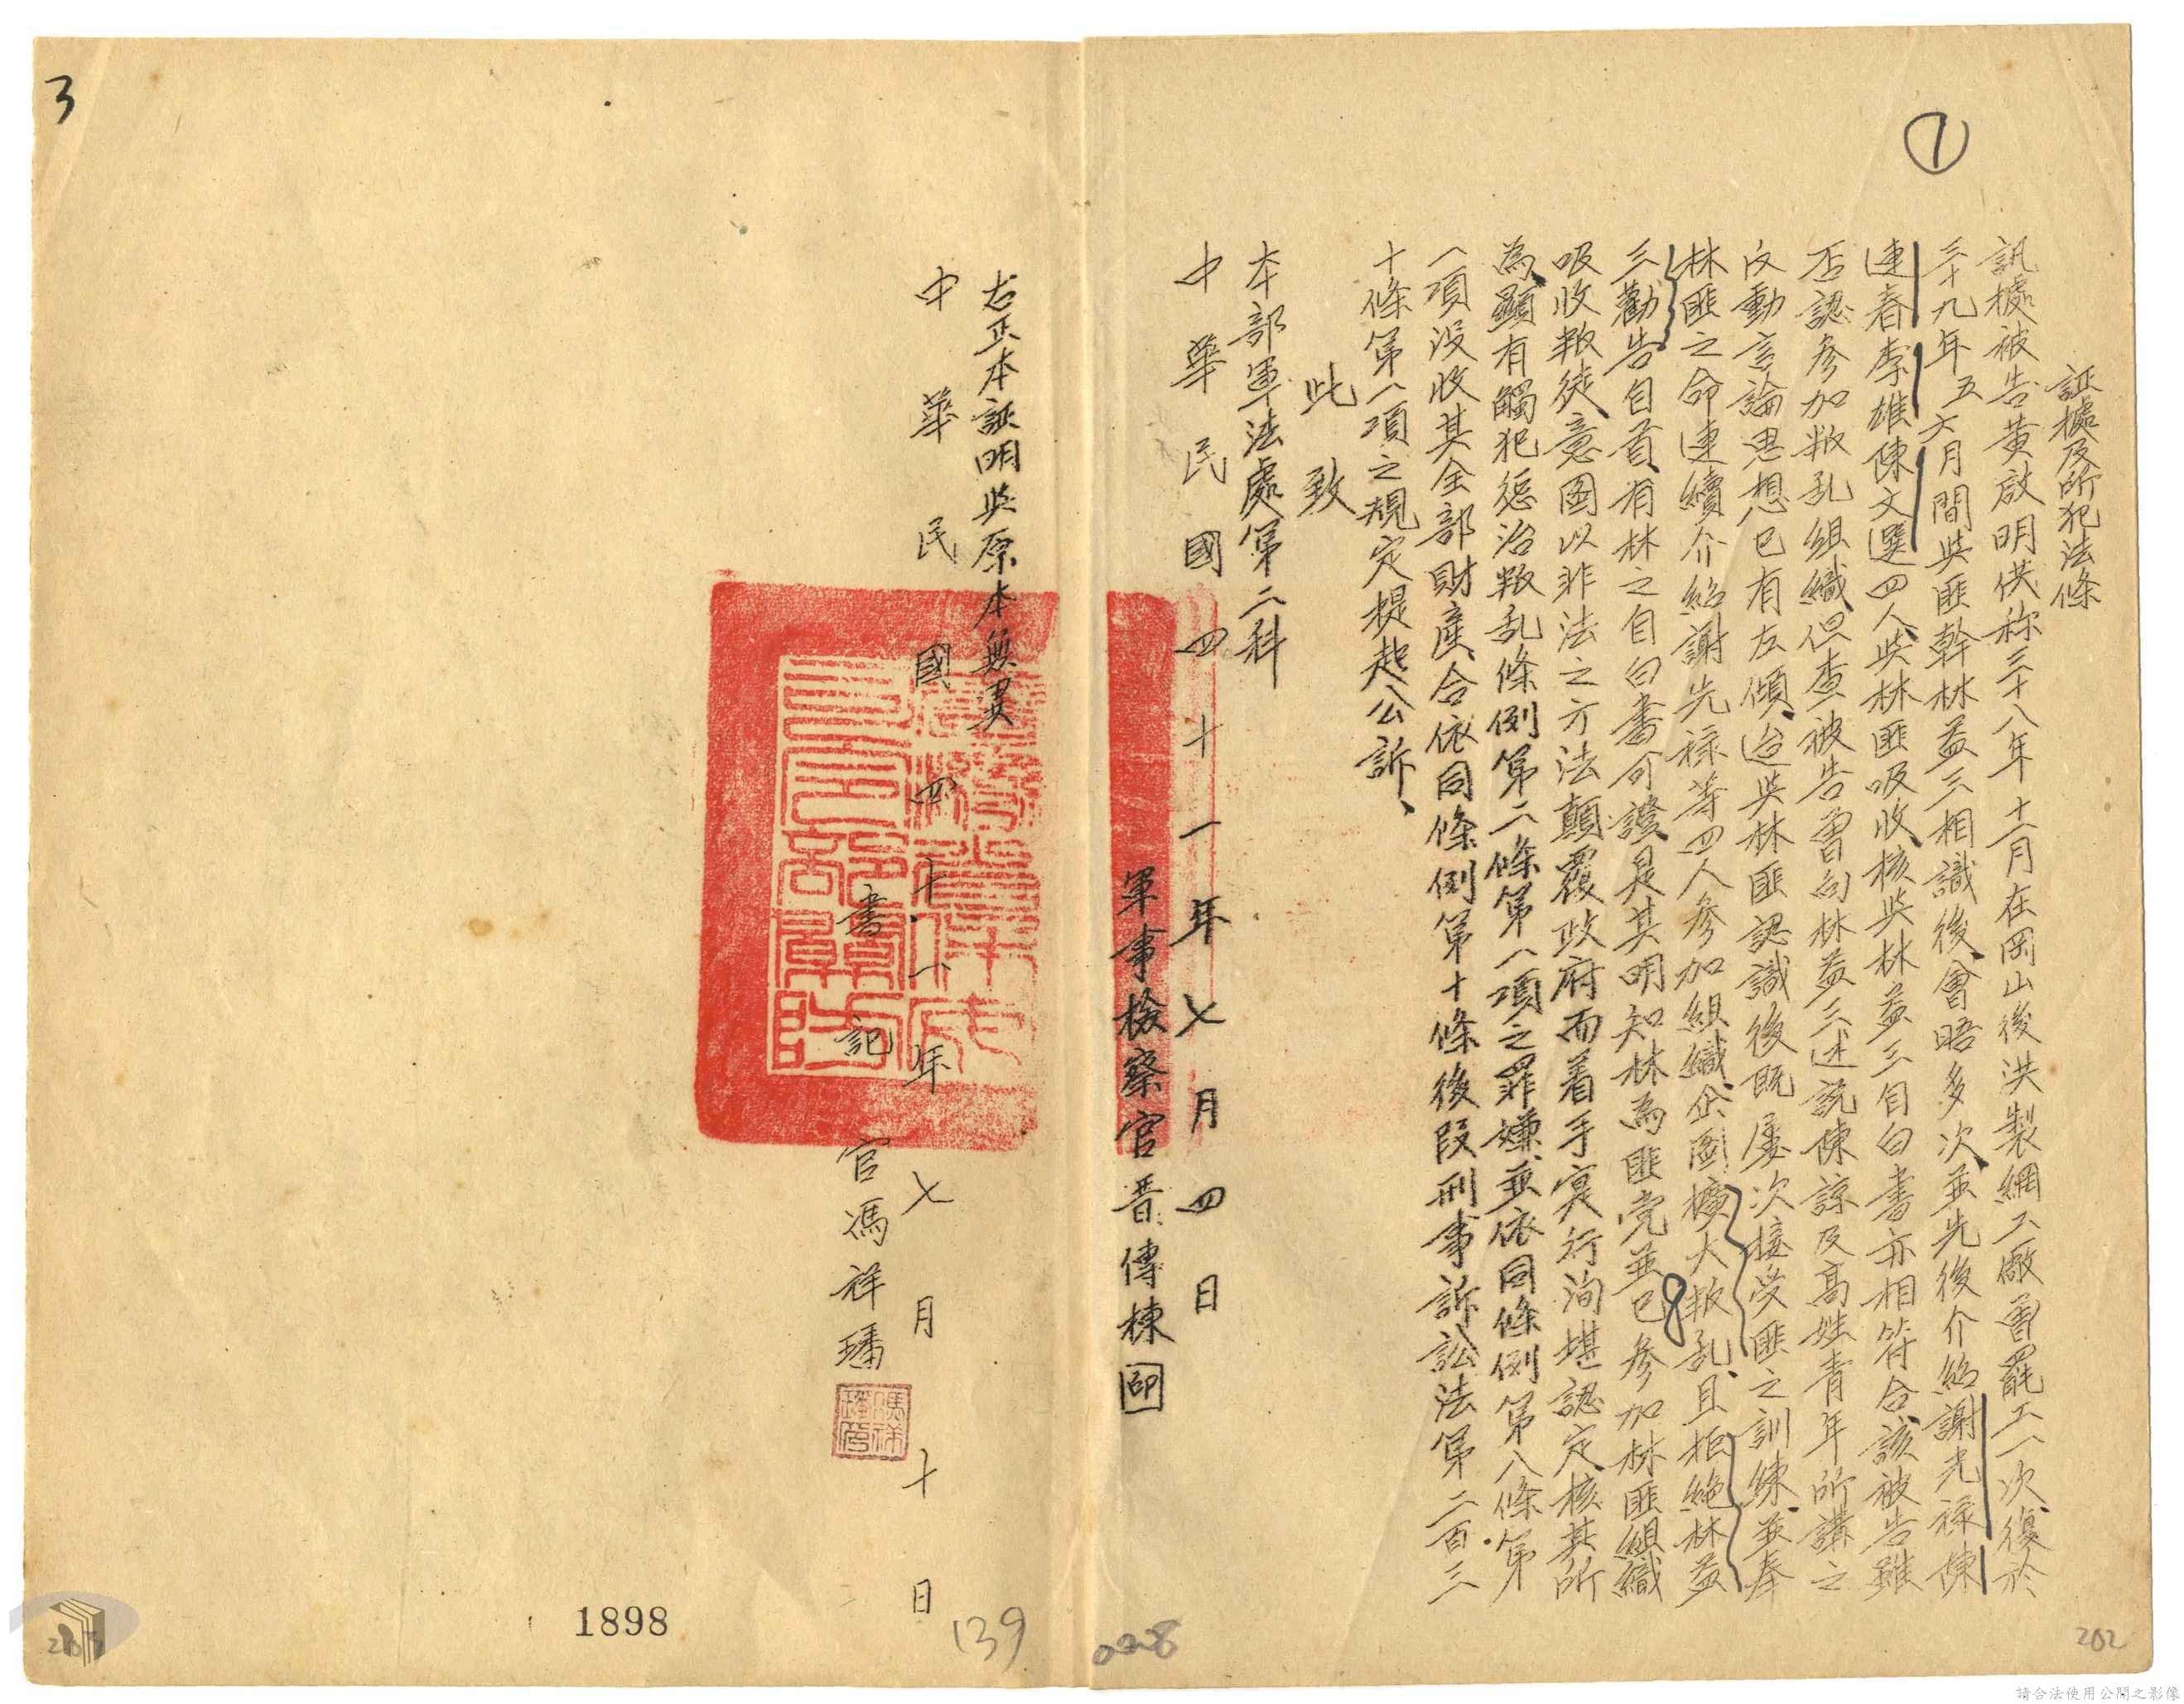 3
①
証據及所犯法條
訊據被告黃啟明供称三十八年十一月在岡山後洪製網工廠曾罷工一次復於
三十九年五六月間與匪幹林益三相識後、會晤多次、並先後介紹謝先禄陳
連春李雄陳文選四人與林匪吸收、核與林益三自白書亦相符合、該被告雖
否認參加叛乱組織、但查被告曾向林益三述說陳諒及高姓青年所講之
反動言論思想已有左傾、迨與林匪認識後既屢次接受匪之訓練、並奉
林匪之命連續介紹謝先禄等四人參加組織、企圖擴大叛乱、且拒絕林益
三勸告自首、有林之自白書可證、是其明知林為匪党並已參加林匪組織
吸收叛徒、意圖以非法之方法顛覆政府而着手实行洵堪認定、核其所
為、顯有觸犯懲治叛乱條例第二條第一項之罪嫌、並依同條例第八條第
一項沒收其全部財產、合依同條例第十條後段刑事訴訟法第二百三
十條第一項之規定提起公訴、
此致
本部軍法處第二科
中華民國四十一年七月四日
軍事檢察官晋傳棟印
右正本証明與原本無異
中華民國四十一年七月十日
書記官馮祥璠
臺灣省保安司令部軍法處
1898
139
0228
202
請合法使用公開之影像